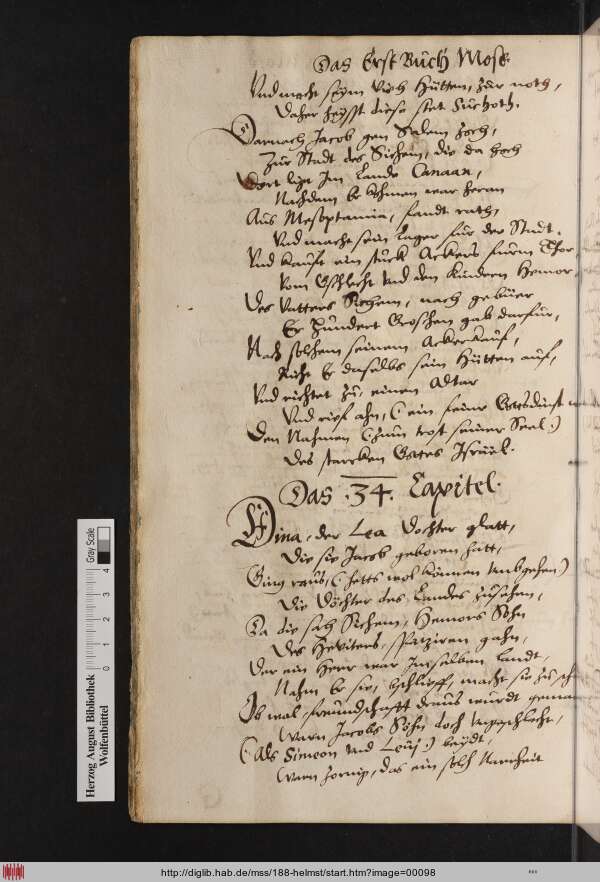 Das Erst Buch Mose.
Vnd macht seym Viech Hütten, zur noth,
Daher heysst diese stet Suchoth.
Darnach Jacob gen Salem zoch,
Zur Stadt des Sichem, die da hoch
Dort ligt Im Lande Canaan,
Nachdem Er khmen war heran
Aus Mesoptamia, fandt rath,
Vnd macht sein Lager für der Stadt.
Vnd kaufft ein stuck Ackers fürm Thor,
Vom Gschlecht vnd den Kindern Hemor
Des Vatters Sichem, nach gebüer
Er Hundert Groschen gab darfür,
Nach solchem seinem Ackerkauff,
Richt Er daselbs sein Hütten auff,
Vnd richtet zu, einen Altar
Vnd rief ahn, (: ein feine Gottsdinst
Den Nahmen (: zum trost seiner Seel :)
Des starcken Gottes Israel.
Das .34. Capitel.
Dina, der Lea Dochter glatt,
Die sie Jacob geboren hatt,
Ging raus, (: hetts wol können vmbgehen :)
Die Döchter des Landes zusehen,
Da die sah Sichem, Hemors Sohn
Des Heviters, spatziren gahn,
Der ein Herr war Im selben Landt,
Nahm Er sie, bschlieff, macht sie zu
Ob wol freundschafft draus wurdt
Warn Jacobs Söhn doch
(: Als Simeon vnd Leuj :) beydt,
Warn zornig, das ein solch Narrheit
Herzog August Bibliothek
Wolfenbüttel
Gray Scale
0 1 2 3 4
http://diglib.hab.de/mss/188-helmst/start.htm?image=00098